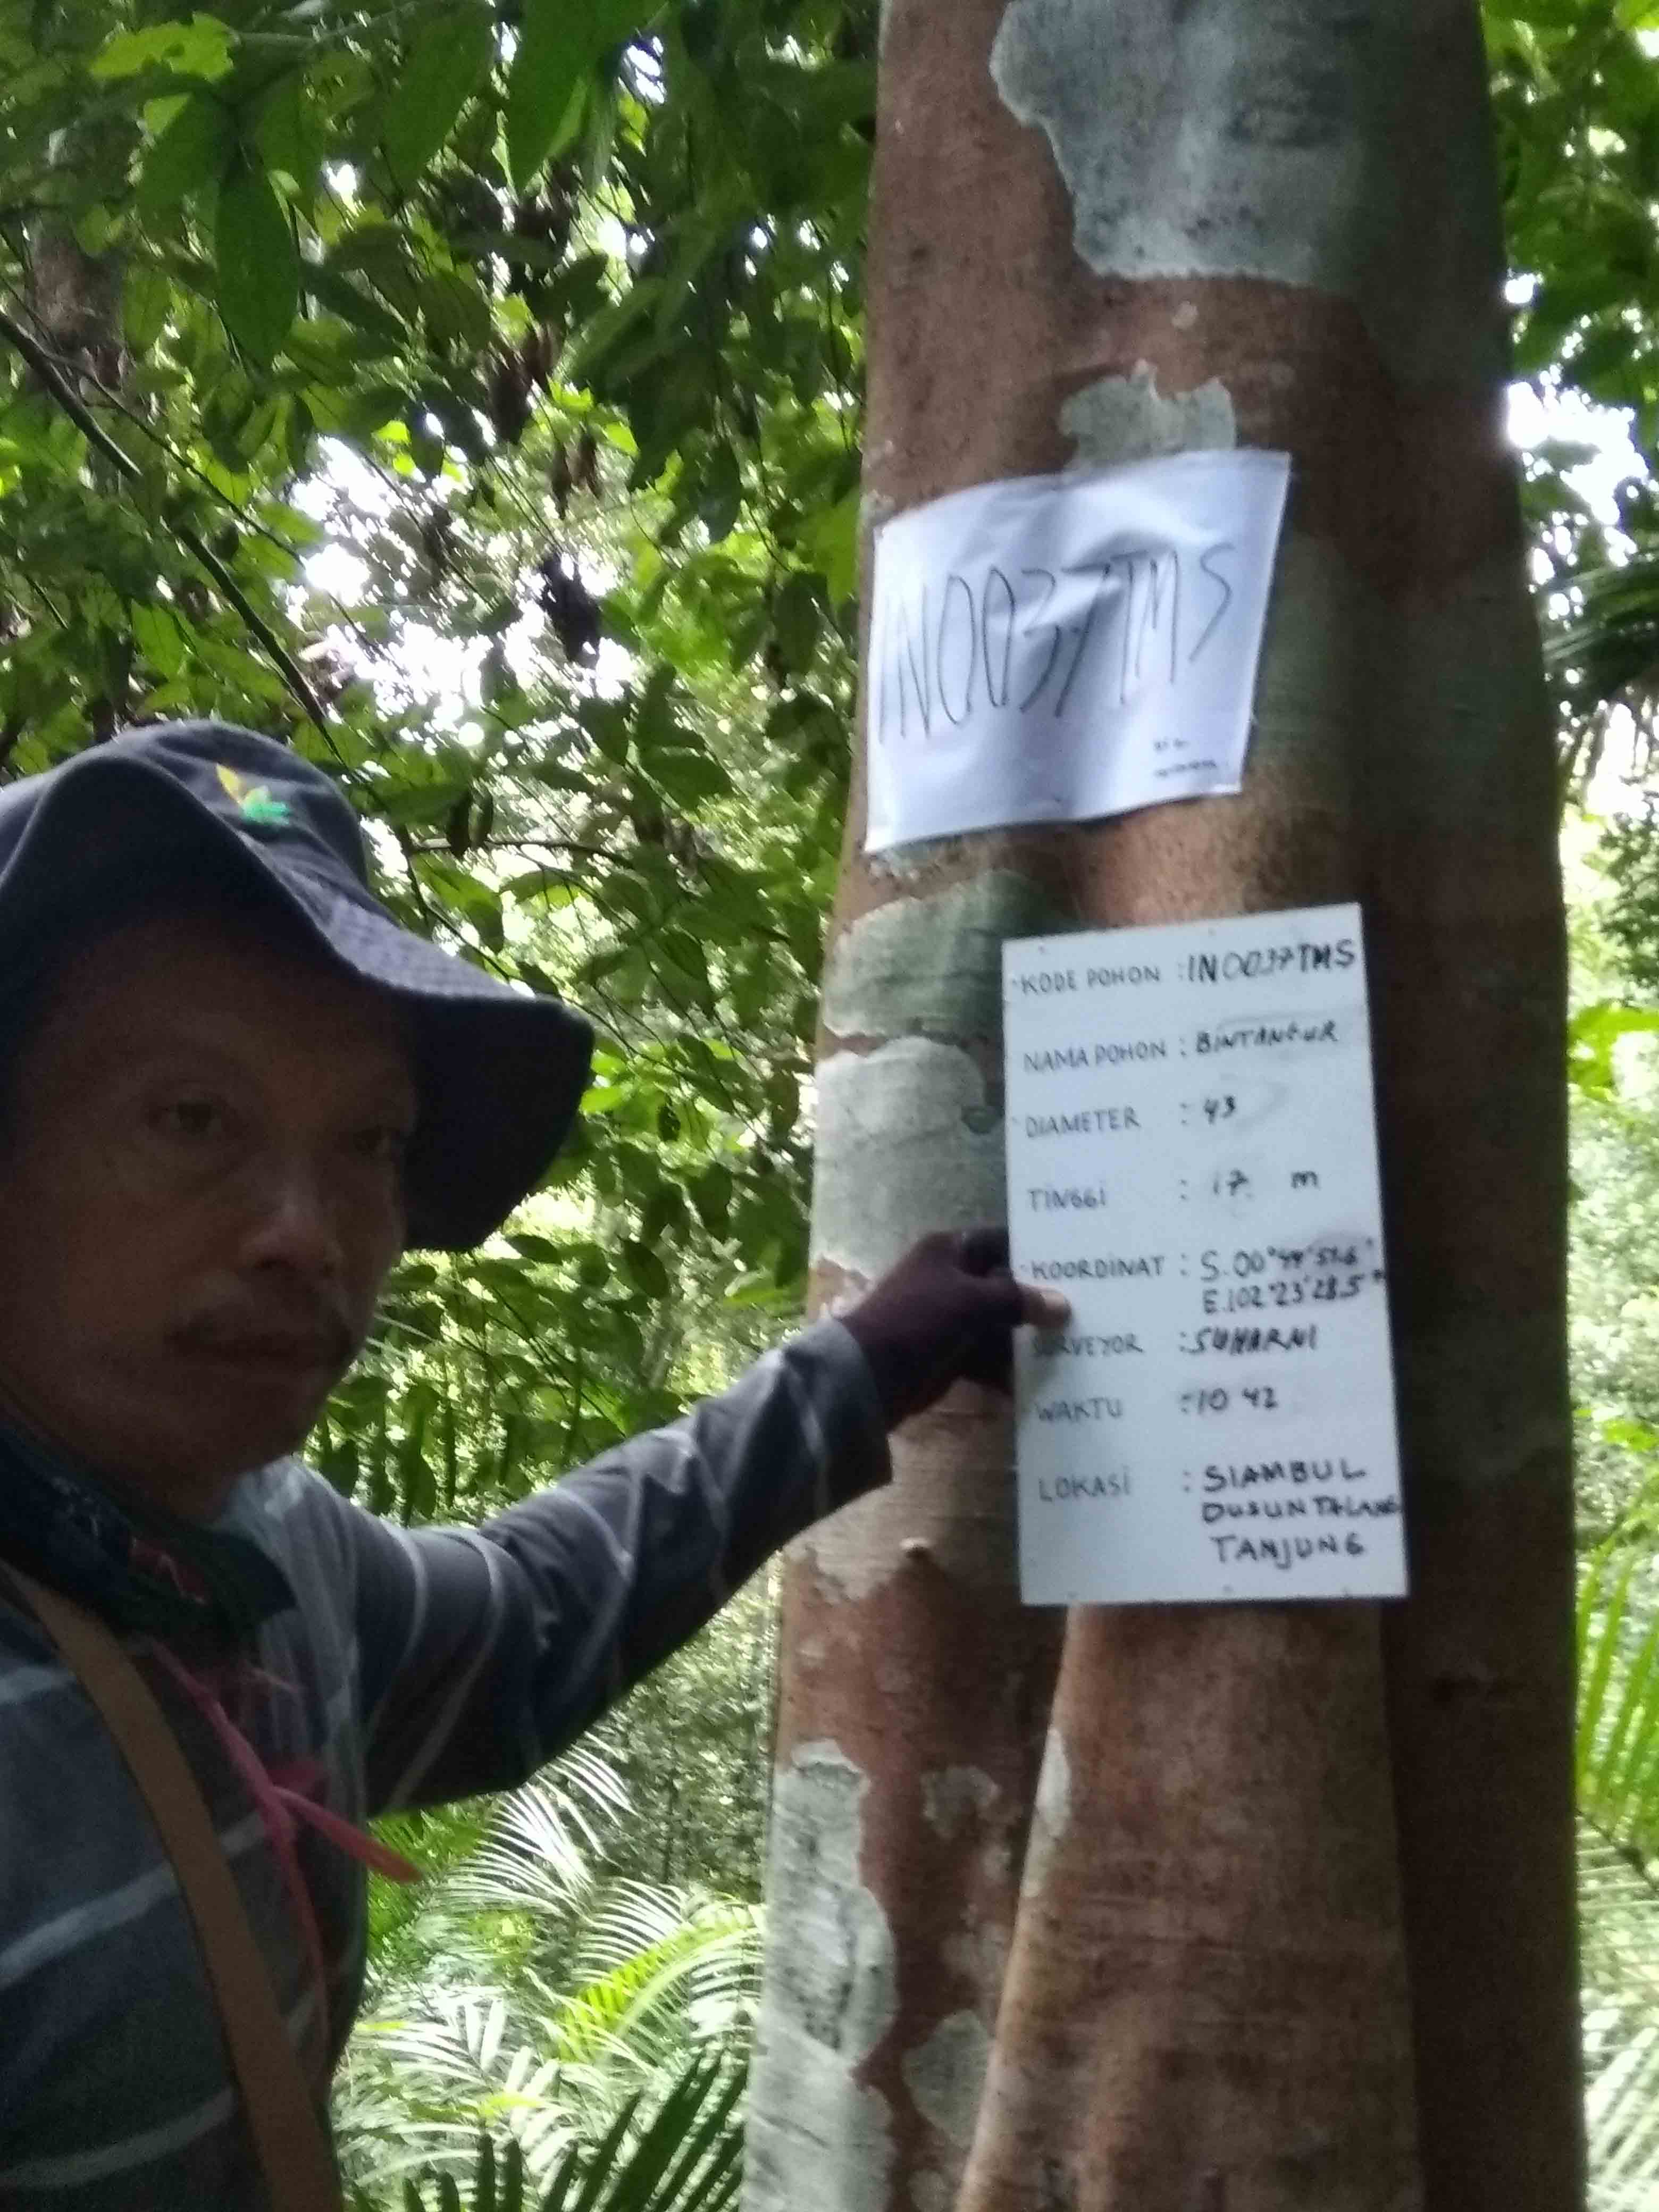 IN0037TMS
KODE POHON : IN0037TMS
NAMA POHON : BINTANGUR
DIAMETER : 43
TINGGI : 17 m
KOORDINAT : S.00°44'51.6"
E.102°23'28.5"
SURVEYOR : SUHARNI
WAKTU : 10 42
LOKASI : SIAMBUL
DUSUN TALANG
TANJUNG